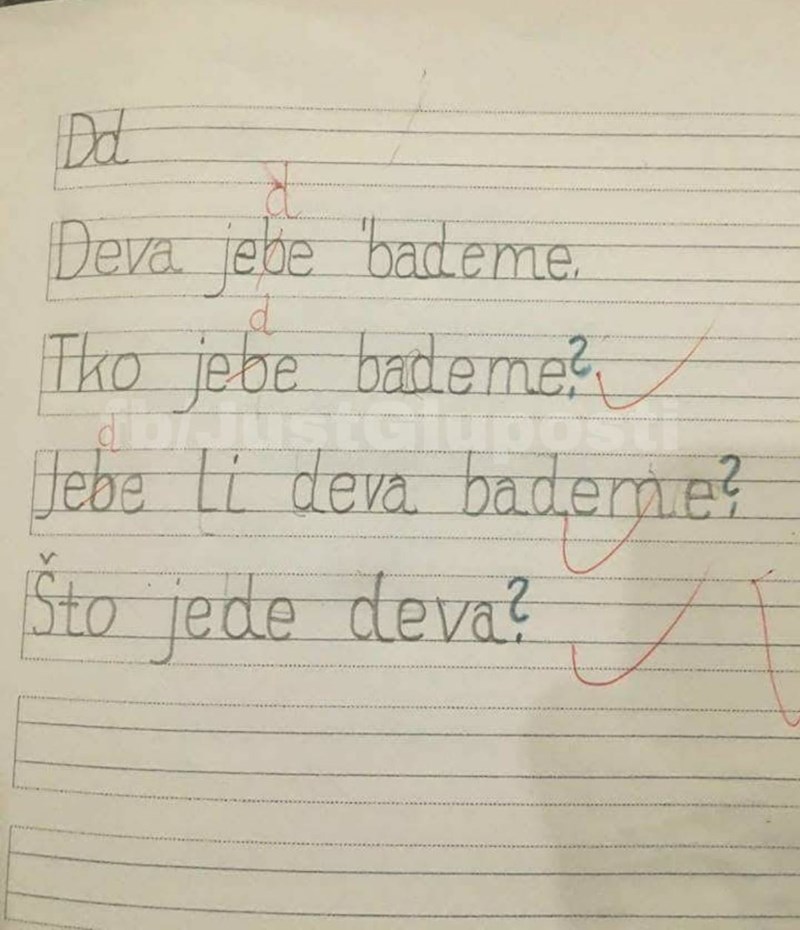 Dd
d
Deva jebe bademe.
d
Tko jebe bademe?
fb/JustGluposti
d
Jebe li deva bademe?
Što jede deva?